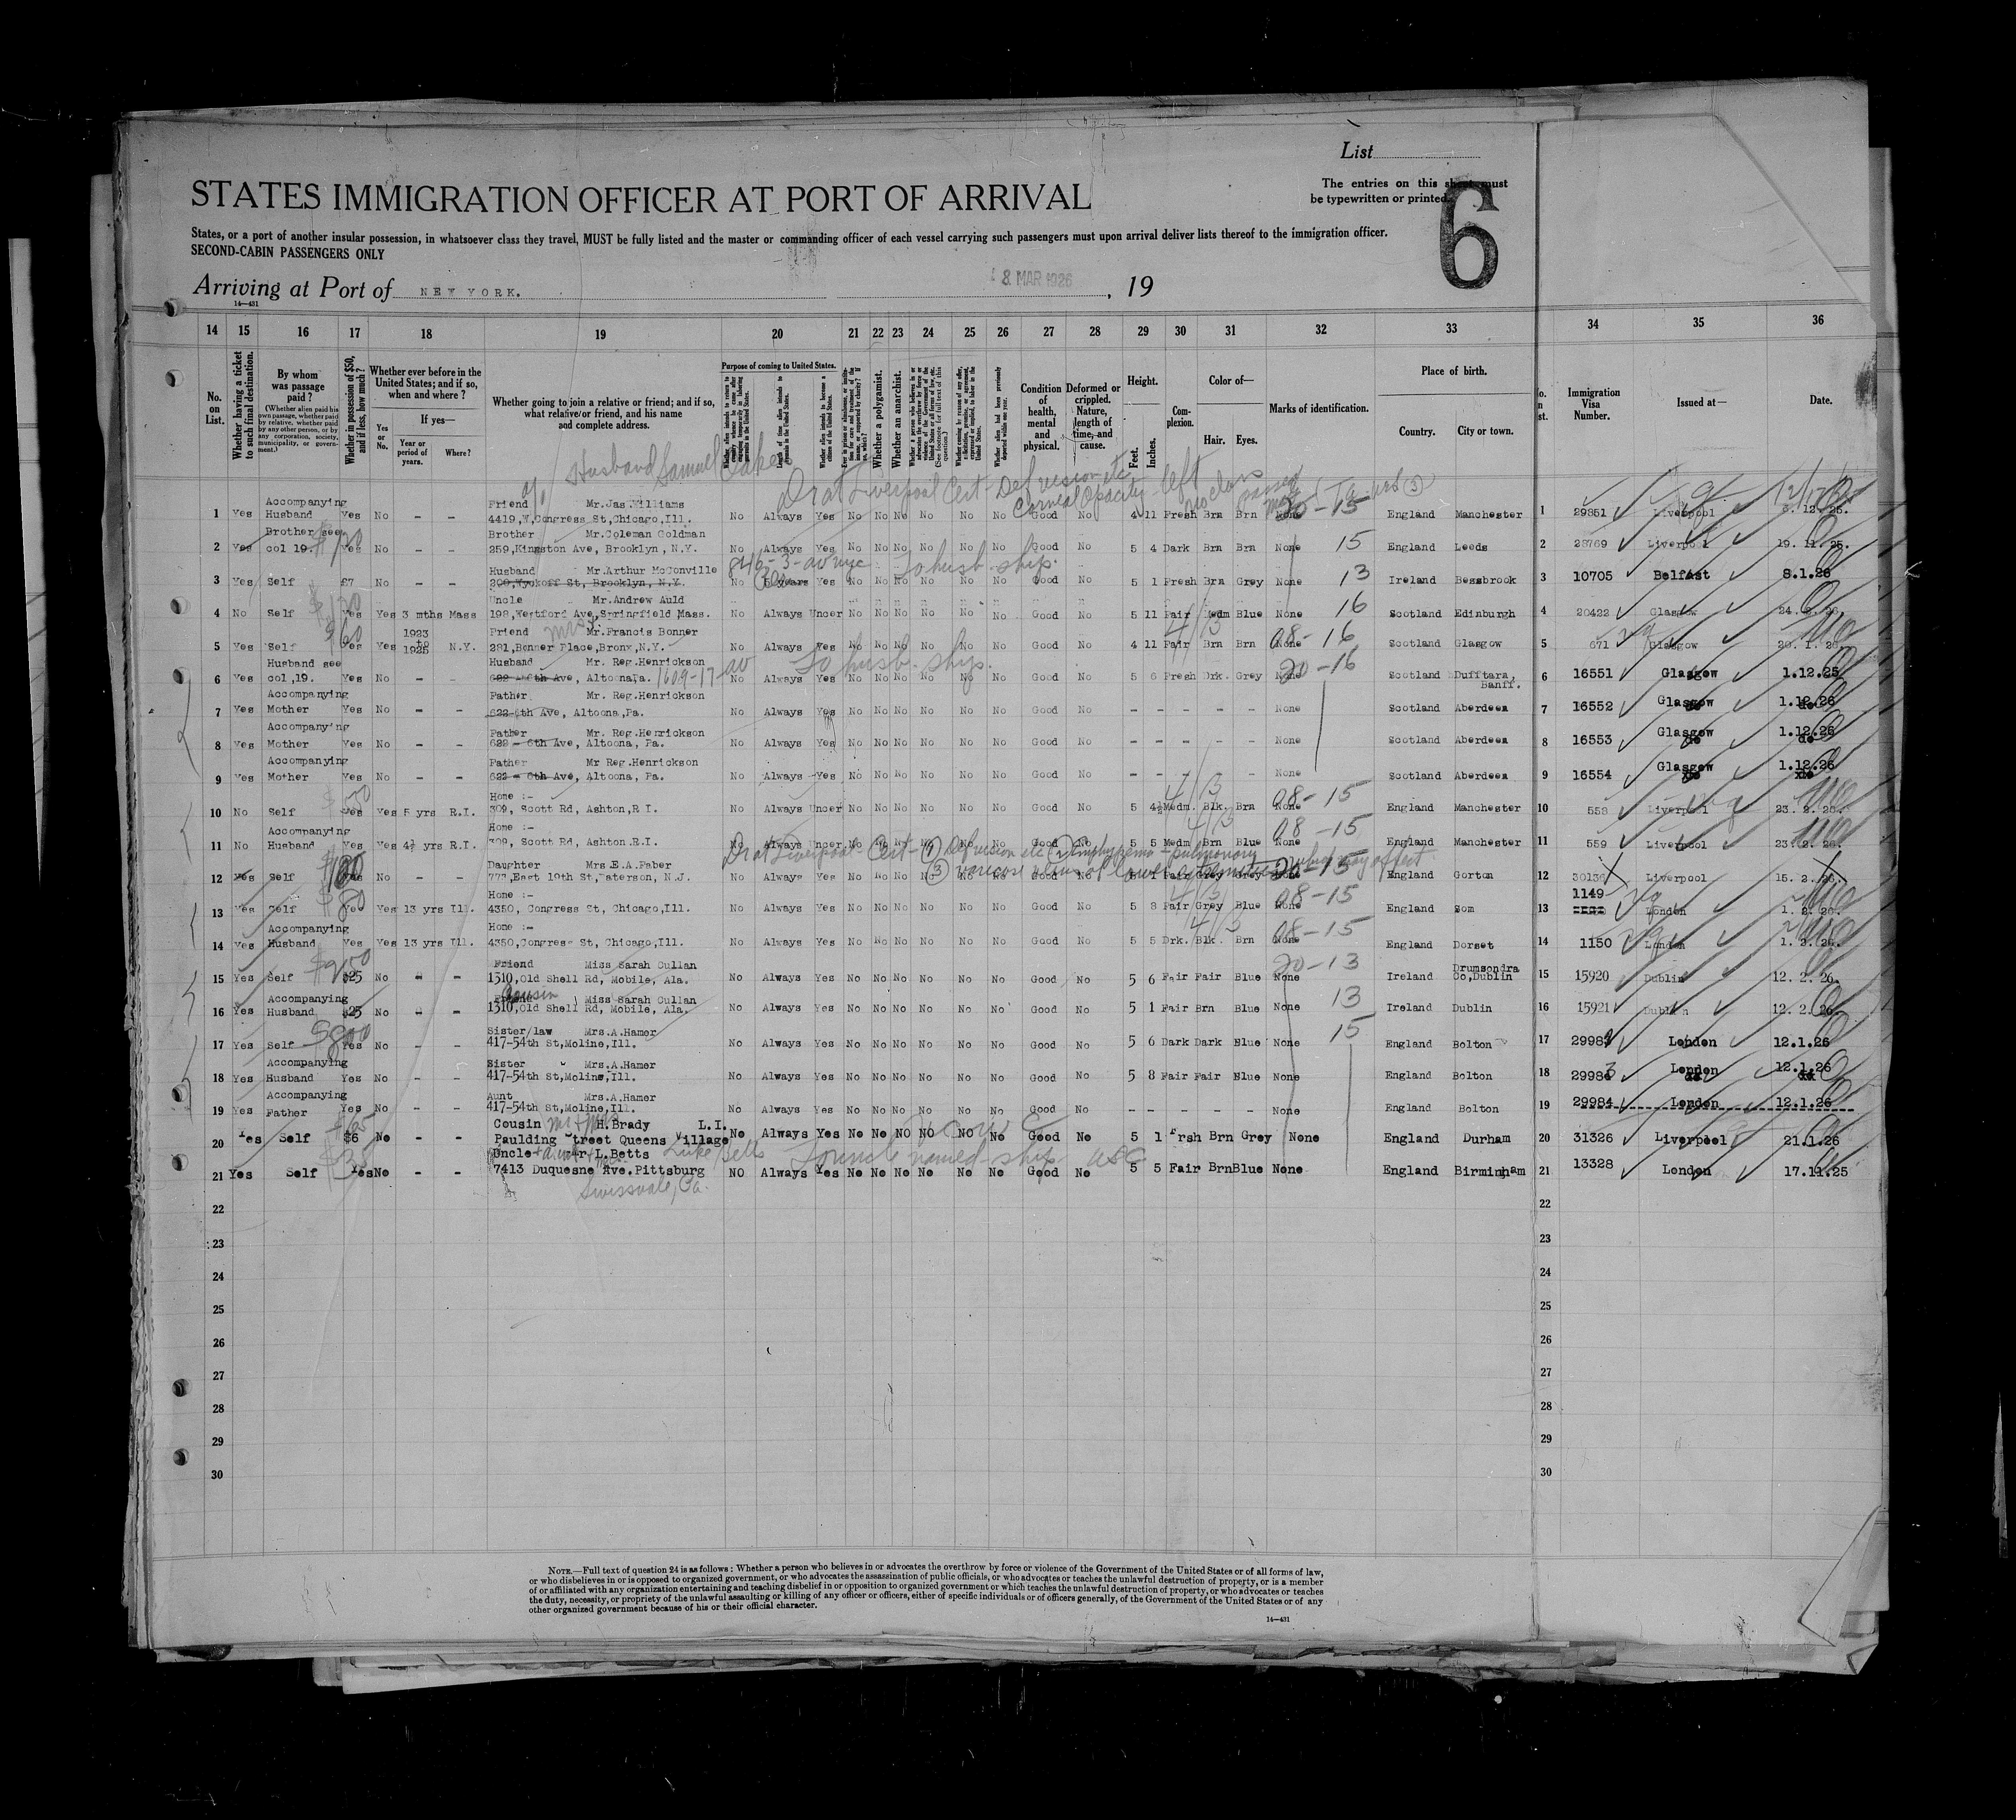 List
The entries on this sheet must
be typewritten or printed.
6
STATES IMMIGRATION OFFICER AT PORT OF ARRIVAL
States, or a port of another insular possession, in whatsoever class they travel, MUST be fully listed and the master or commanding officer of each vessel carrying such passengers must upon arrival deliver lists thereof to the immigration officer.
SECOND-CABIN PASSENGERS ONLY
Arriving at Port of NEW YORK. 8 MAR 1926, 19
14—431
14 15 16 17 18 19 20 21 22 23 24 25 26 27 28 29 30 31 32 33 34 35 36
No. on List.
Whether having a ticket to such final destination.
By whom was passage paid?
(Whether alien paid his own passage, whether paid by relative, whether paid by any other person, or by any corporation, society, municipality, or government.)
Whether in possession of $50, and if less, how much?
Whether ever before in the United States; and if so, when and where?
If yes—
Yes or No.
Year or period of years.
Where?
Whether going to join a relative or friend; and if so, what relative or friend, and his name and complete address.
Purpose of coming to United States.
Whether a polygamist.
Whether an anarchist.
Condition of health, mental and physical.
Deformed or crippled. Nature, length of time, and cause.
Height.
Feet. Inches.
Complexion.
Color of—
Hair. Eyes.
Marks of identification.
Place of birth.
Country. City or town.
Immigration Visa Number.
Issued at—
Date.
Husband Samuel
Dr at Liverpool Cert - Def vision etc
Corneal Opacity - left
Accompanying Friend Mr.Jas.Williams
1 Yes Husband Yes No - - 4419,W,Congress St,Chicago,Ill. No Always Yes No No No No No No Good No 4 11 Fresh Brn Brn None 20-15 England Manchester 1 29851 Liverpool 3. 12. 25.
Brother see Brother Mr.Coleman Goldman
2 Yes col 19. Yes No - - 259,Kingston Ave, Brooklyn, N.Y. No Always Yes No No No No No No Good No 5 4 Dark Brn Brn None 15 England Leeds 2 28769 Liverpool 19. 11. 25.
Husband Mr.Arthur McConville 846-3-av nyc To husb. ship.
3 Yes Self £7 No - - 209,Wyckoff St, Brooklyn, N.Y. No Years Yes No No No No No No Good No 5 1 Fresh Brn Grey None 13 Ireland Bessbrook 3 10705 Belfast 8.1.26
Uncle Mr.Andrew Auld
4 No Self Yes Yes 3 mths Mass 198,Westford Ave,Springfield Mass. No Always Uncer No No No No No No Good No 5 11 Fair Medm Blue None 16 Scotland Edinburgh 4 20422 Glasgow
1923 Friend Mrs Mr.Francis Bonner
5 Yes Self Yes Yes to 1925 N.Y. 281,Bonner Place,Bronx,N.Y. No Always Yes No No No No No No Good No 4 11 Fair Brn Brn None 08-16 Scotland Glasgow 5 671 Glasgow 20. 1. 26.
Husband see Husband Mr. Reg.Henrickson To husb. ship.
6 Yes col,19. Yes No - - 622-6th Ave, Altoona,Pa. 1609-17-av No Always Yes No No No No No No Good No 5 6 Fresh Drk. Grey None 20-16 Scotland Dufftara, Banff. 6 16551 Glasgow 1.12.25
Accompanying Father Mr. Reg.Henrickson
7 Yes Mother Yes No - - 622-6th Ave, Altoona,Pa. No Always Yes No No No No No No Good No - - - - - None Scotland Aberdeen 7 16552 Glasgow 1.12.26
Accompanying Father Mr. Reg.Henrickson
8 Yes Mother Yes No - - 622 - 6th Ave, Altoona, Pa. No Always Yes No No No No No No Good No - - - - - None Scotland Aberdeen 8 16553 Glasgow 1.12.26
Accompanying Father Mr Reg.Henrickson
9 Yes Mother Yes No - - 622 - 6th Ave, Altoona, Pa. No Always Yes No No No No No No Good No - - - - - None Scotland Aberdeen 9 16554 Glasgow 1.12.26
Home :-
10 No Self Yes Yes 5 yrs R.I. 309, Scott Rd, Ashton,R I. No Always Uncer No No No No No No Good No 5 4½ Medm. Blk. Brn None 08-15 England Manchester 10 558 Liverpool 23. 2. 26.
Accompanying Home :-
11 No Husband Yes Yes 4½ yrs R.I. 309, Scott Rd, Ashton.R.I. No Always Uncer No No No No No No Good No 5 5 Medm Brn Blue None 08-15 England Manchester 11 559 Liverpool 23. 2. 26.
Dr at Liverpool - Cert - (1) Def vision etc (2) Emphysema - pulmonary
(3) varicose veins of lower which may affect
Daughter Mrs.E.A.Faber
12 Yes Self Yes No - - 777,East 19th St,Paterson, N.J. No Always Yes No No No No No No Fair Grey Grey None 20-15 England Gorton 12 30136 Liverpool 15. 2. 26.
Home :-
13 Yes Self Yes Yes 13 yrs Ill. 4350, Congress St, Chicago,Ill. No Always Yes No No No No No No Good No 5 8 Fair Grey Blue None 08-15 England Som 13 1149 London 1. 2. 26.
Accompanying Home :-
14 Yes Husband Yes Yes 13 yrs Ill. 4350,Congress St, Chicago,Ill. No Always Yes No No No No No No Good No 5 5 Drk. Blk. Brn None 08-15 England Dorset 14 1150 London 1. 2. 26.
Friend Miss Sarah Cullan
15 Yes Self $25 No - - 1310,Old Shell Rd, Mobile, Ala. No Always Yes No No No No No No Good No 5 6 Fair Fair Blue None 20-13 Ireland Drumsondra Co,Dublin 15 15920 Dublin 12. 2. 26.
Accompanying Cousin Miss Sarah Cullan
16 Yes Husband $25 No - - 1310,Old Shell Rd, Mobile, Ala. No Always Yes No No No No No No Good No 5 1 Fair Brn Blue None 13 Ireland Dublin 16 15921 Dublin 12. 2. 26.
Sister/law Mrs.A.Hamer
17 Yes Self Yes No - - 417-54th St,Moline,Ill. No Always Yes No No No No No No Good No 5 6 Dark Dark Blue None 15 England Bolton 17 London 12.1.26
Accompanying Sister Mrs.A.Hamer
18 Yes Husband Yes No - - 417-54th St,Moline,Ill. No Always Yes No No No No No No Good No 5 8 Fair Fair Blue None England Bolton 18 29983 London 12.1.26
Accompanying Aunt Mrs.A.Hamer
19 Yes Father Yes No - - 417-54th St,Moline,Ill. No Always Yes No No No No No No Good No - - - - - None England Bolton 19 29984 London 12.1.26
Cousin Mr + Mrs H.Brady L.I.
20 Yes Self $6 No - - Paulding Street Queens Village No Always Yes No No NO NO NO No Good No 5 1 Frsh Brn Grey None England Durham 20 31326 Liverpool 21.1.26
Uncle + aunt Mr.L.Betts Luke Betts To uncle named - ship
21 Yes Self Yes No - - 7413 Duquesne Ave.Pittsburg NO Always Yes No No No No No No Good No 5 5 Fair Brn Blue None England Birmingham 21 13328 London 17.11.25
Swissvale, Pa.
22 22
23 23
24 24
25 25
26 26
27 27
28 28
29 29
30 30
NOTE.—Full text of question 24 is as follows: Whether a person who believes in or advocates the overthrow by force or violence of the Government of the United States or of all forms of law,
or who disbelieves in or is opposed to organized government, or who advocates the assassination of public officials, or who advocates or teaches the unlawful destruction of property, or is a member
of or affiliated with any organization entertaining and teaching disbelief in or opposition to organized government or which teaches the unlawful destruction of property, or who advocates or teaches
the duty, necessity, or propriety of the unlawful assaulting or killing of any officer or officers, either of specific individuals or of officers generally, of the Government of the United States or of any
other organized government because of his or their official character.
14—431